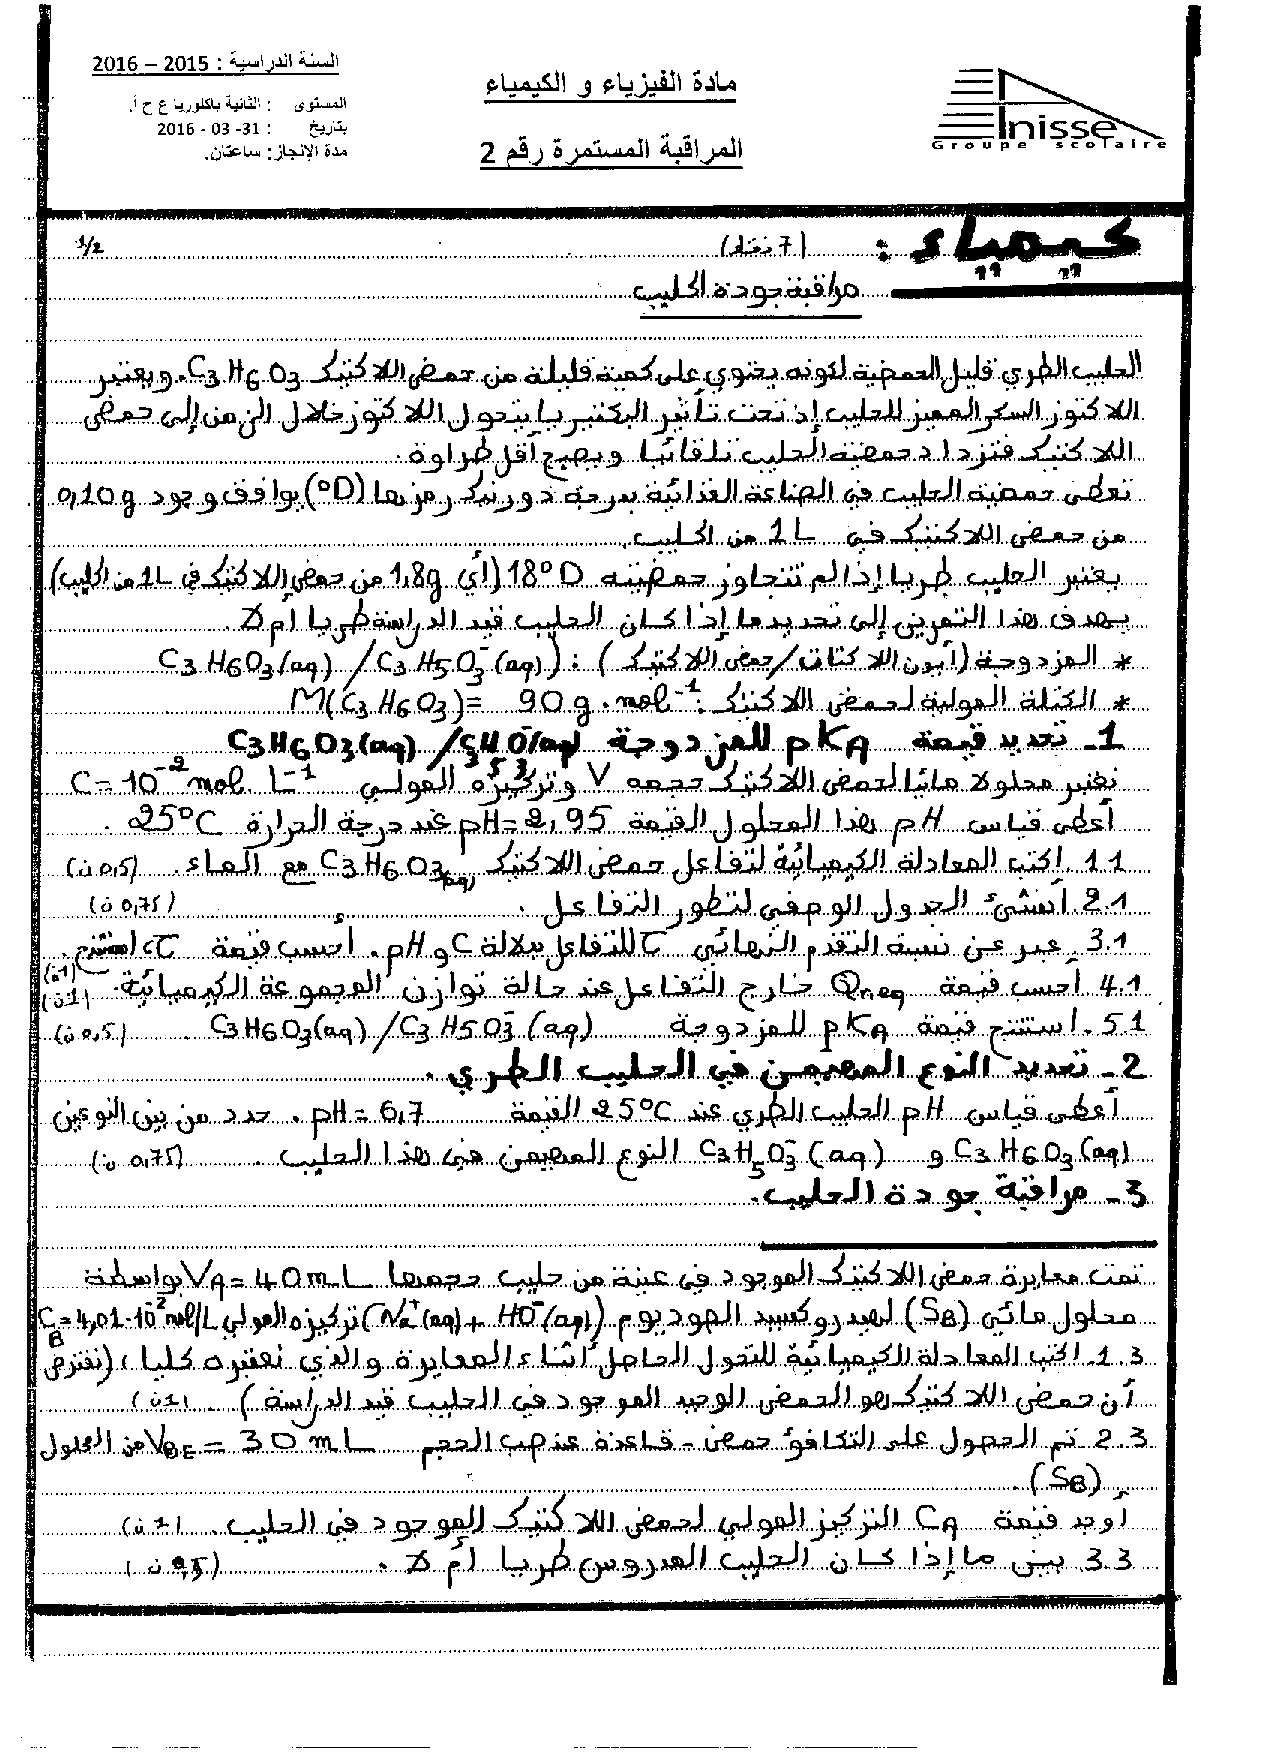 السنة الدراسية : 2015 – 2016
المستوى : الثانية باكلوريا ع ح أ.
بتاريخ : 31- 03 - 2016
مدة الإنجاز: ساعتان.
مادة الفيزياء و الكيمياء
المراقبة المستمرة رقم 2
Inisse
Groupe scolaire
كيمياء : (7 نقط) 1/2
مراقبة جودة الحليب
الحليب الطري قليل الحمضية لكونه يحتوي على كمية قليلة من حمض اللاكتيك C3H6O3. ويعتبر
اللاكتوز السكر المميز للحليب إذ تحت تأثير البكتيريا يتحول اللاكتوز خلال الزمن إلى حمض
اللاكتيك فتزداد حمضية الحليب تلقائيا ويصبح أقل طراوة.
تعطى حمضية الحليب في الصناعة الغذائية بدرجة دورنيك رمزها (°D) يوافق وجود 0,10g
من حمض اللاكتيك في 1L من الحليب.
يعتبر الحليب طريا إذا لم تتجاوز حمضيته 18°D (أي 1,8g من حمض اللاكتيك في 1L من الحليب)
يهدف هذا التمرين إلى تحديد ما إذا كان الحليب قيد الدراسة طريا أم لا.
* المزدوجة (أيون اللاكتات/حمض اللاكتيك) : C3H6O3(aq) / C3H5O3⁻(aq)
* الكتلة المولية لحمض اللاكتيك: M(C3H6O3)= 90 g.mol⁻¹
1- تحديد قيمة pKA للمزدوجة C3H6O3(aq) /C3H5O3⁻(aq)
نعتبر محلولا مائيا لحمض اللاكتيك حجمه V وتركيزه المولي C=10⁻² mol L⁻¹
أعطى قياس pH هذا المحلول القيمة pH=2,95 عند درجة الحرارة 25°C .
1.1. اكتب المعادلة الكيميائية لتفاعل حمض اللاكتيك C3H6O3(aq) مع الماء. (0,5 ن)
2.1. أنشئ الجدول الوصفي لتطور التفاعل . (0,75 ن)
3.1. عبر عن نسبة التقدم النهائي τ للتفاعل بدلالة C و pH. أحسب قيمة τ. استنتج. (1 ن)
4.1 احسب قيمة Qr,eq خارج التفاعل عند حالة توازن المجموعة الكيميائية. (1 ن)
5.1. استنتج قيمة pKA للمزدوجة C3H6O3(aq)/C3H5O3⁻(aq) . (0,5 ن)
2- تحديد النوع المهيمن في الحليب الطري .
أعطى قياس pH الحليب الطري عند 25°C القيمة pH=6,7 . حدد من بين النوعين
C3H6O3(aq) و C3H5O3⁻(aq) النوع المهيمن في هذا الحليب . (0,75 ن)
3- مراقبة جودة الحليب.
تمت معايرة حمض اللاكتيك الموجود في عينة من حليب حجمها VA=40mL بواسطة
محلول مائي (SB) لهيدروكسيد الصوديوم (Na⁺(aq)+ HO⁻(aq)) تركيزه المولي CB=4,01.10⁻² mol/L
1.3. اكتب المعادلة الكيميائية للتحول الحاصل أثناء المعايرة والذي نعتبره كليا، (نفترض
أن حمض اللاكتيك هو الحمض الوحيد الموجود في الحليب قيد الدراسة ) . (1 ن)
2.3 تم الحصول على التكافؤ حمض - قاعدة عند صب الحجم VBE= 30 mL من المحلول
(SB) .
أوجد قيمة CA التركيز المولي لحمض اللاكتيك الموجود في الحليب. (1 ن)
3.3. بين ما إذا كان الحليب المدروس طريا أم لا . (0,5 ن)